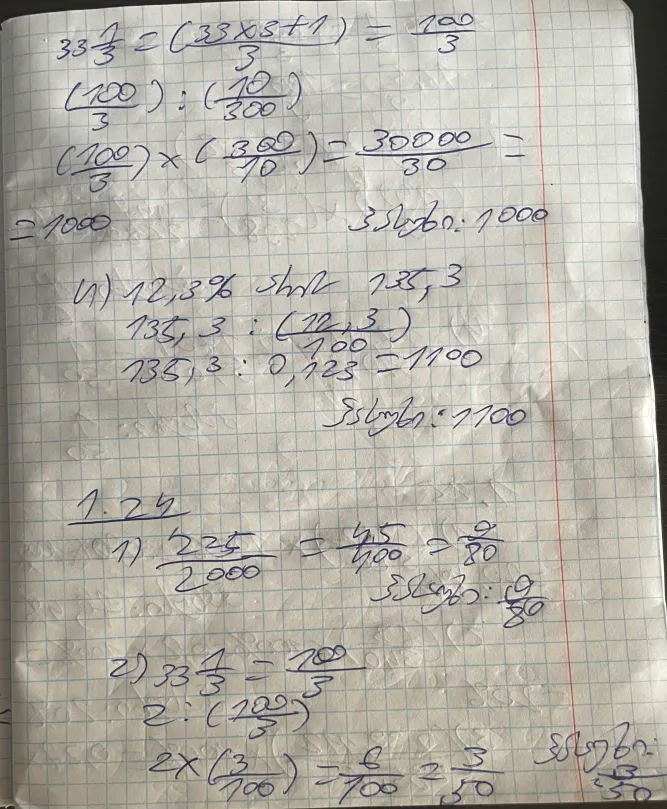 33 1/3 = (33×3+1)/3 = 100/3
(100/3) : (10/300)
(100/3) × (300/10) = 30000/30 =
= 1000 პასუხი: 1000
4) 12,3% არის 135,3
135,3 : (12,3/100)
135,3 : 0,123 = 1100
პასუხი: 1100
1.24
1) 225/2000 = 45/400 = 9/80
პასუხი: 9/80
2) 33 1/3 = 100/3
2 : (100/3)
2 × (3/100) = 6/100 = 3/50 პასუხი: 3/50